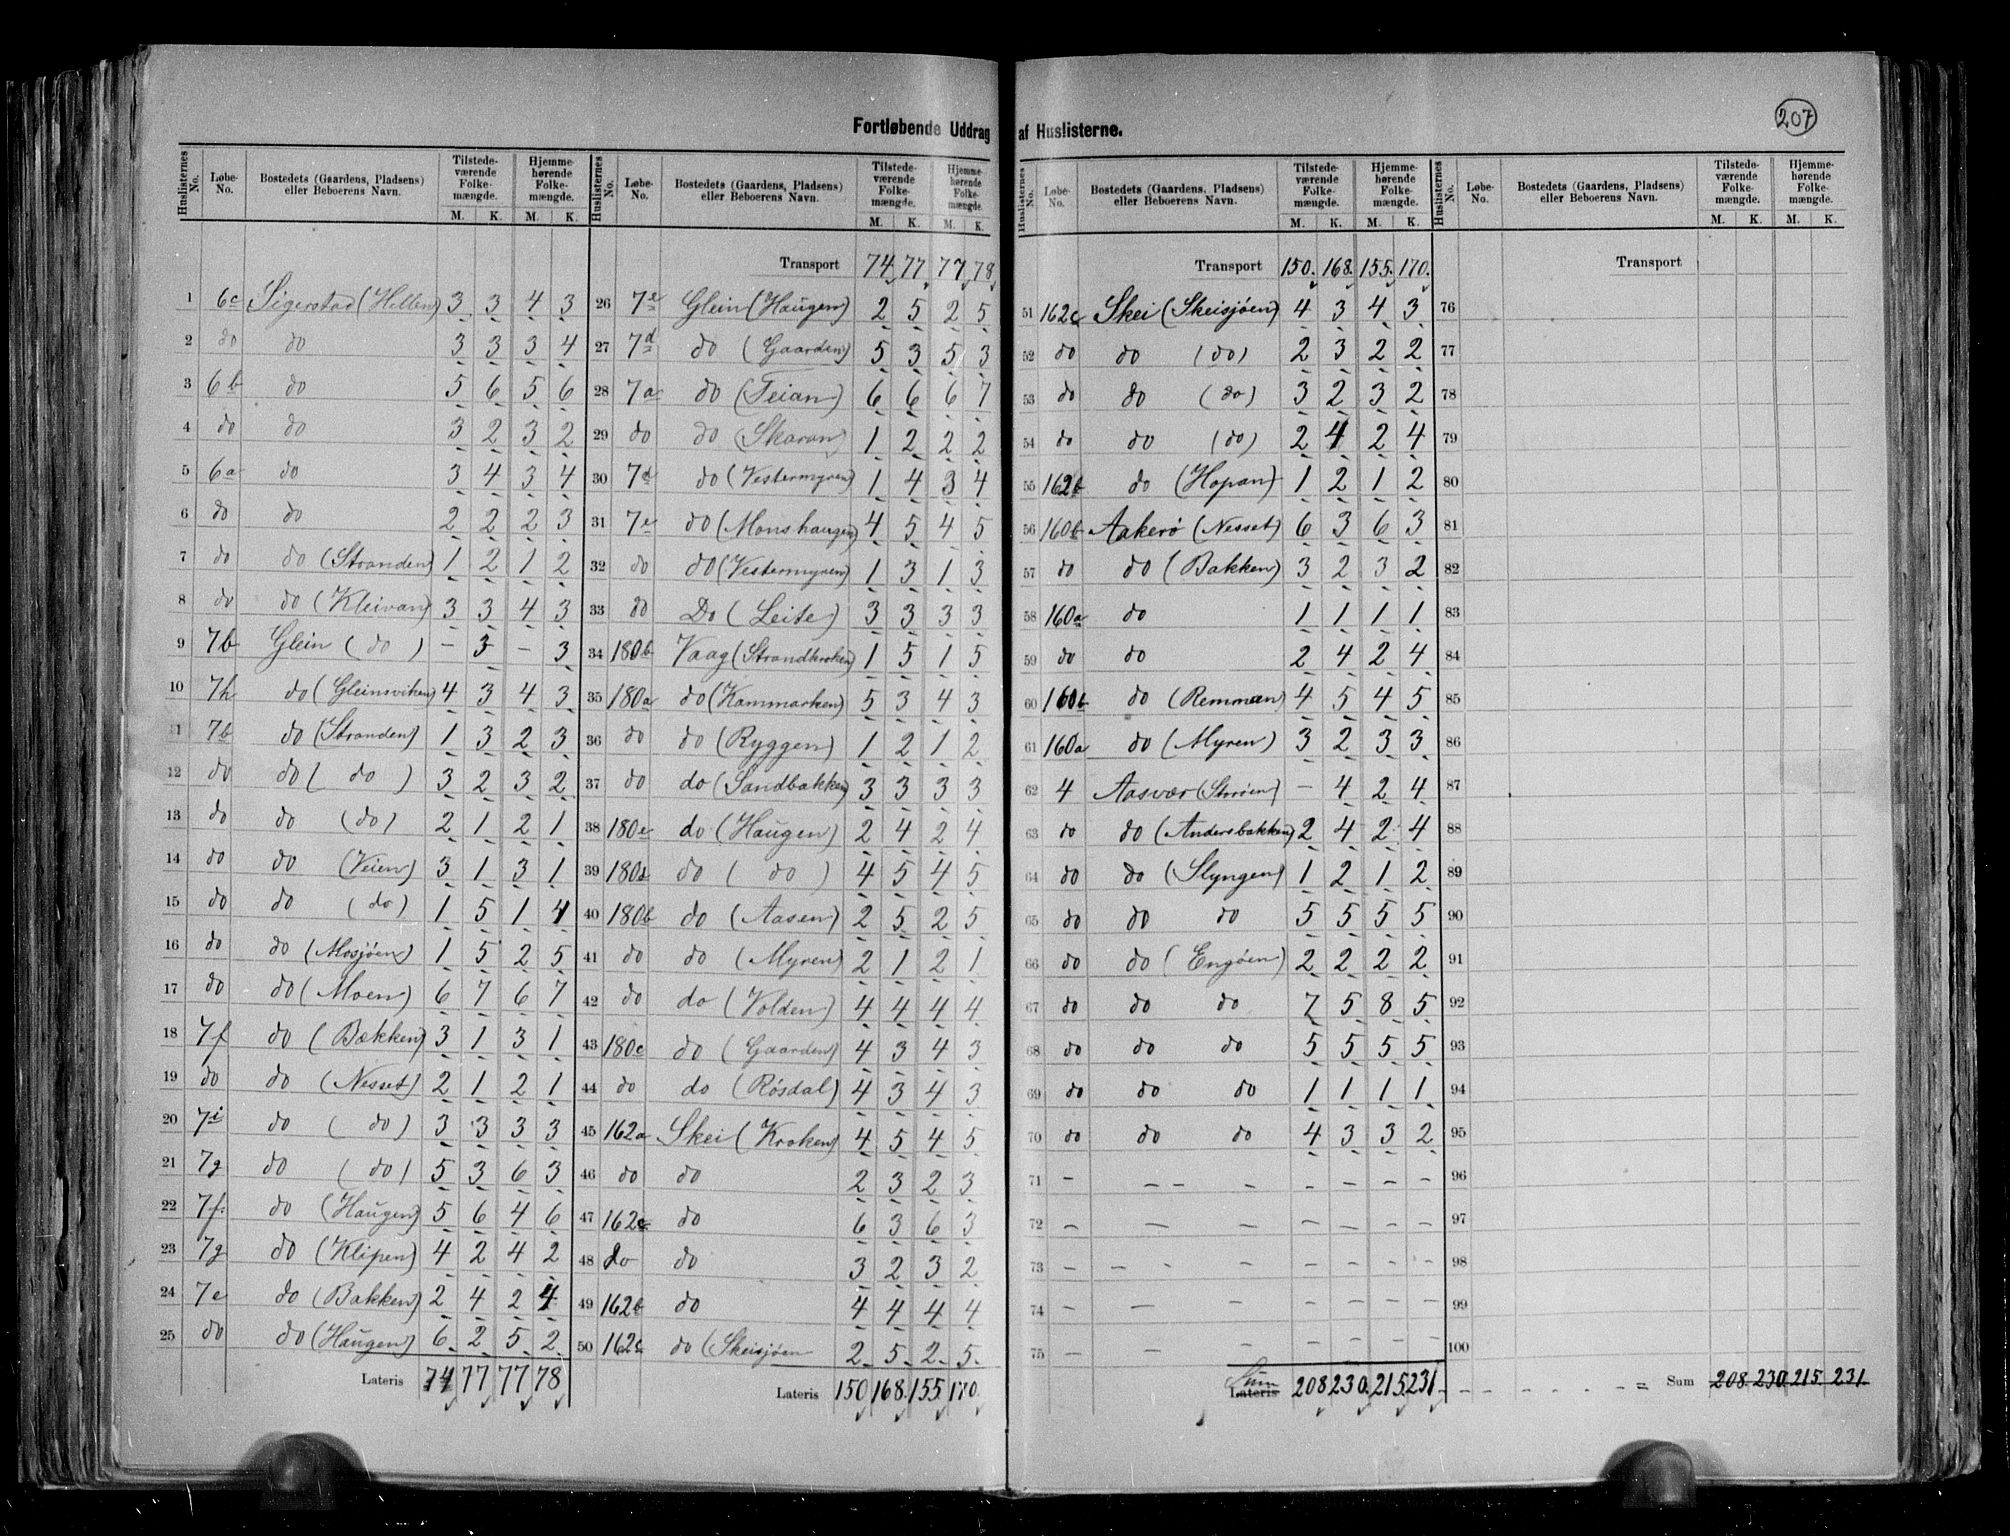 207
Fortløbende Uddrag af Huslisterne.
Huslisternes No. Løbe-No. Bostedets (Gaardens, Pladsens) eller Beboerens Navn. Tilstedeværende Folkemængde. M. K. Hjemmehørende Folkemængde. M. K.
1 6c Sigerstad (Hellen) 3 3 4 3
2 do do 3 3 3 4
3 6b do 5 6 5 6
4 do do 3 2 3 2
5 6a do 3 4 3 4
6 do do 2 2 2 3
7 do do (Stranden) 1 2 1 2
8 do do (Kleivan) 3 3 4 3
9 7b Glein (do) – 3 – 3
10 7h do (Gleinsviken) 4 3 4 3
11 7b do (Stranden) 1 3 2 3
12 do do (do) 3 2 3 2
13 do do (do) 2 1 2 1
14 do do (Veien) 3 1 3 1
15 do do (do) 1 5 1 4
16 do do (Mosjøen) 1 5 2 5
17 do do (Moen) 6 7 6 7
18 7f do (Bækken) 3 1 3 1
19 do do (Nesset) 2 1 2 1
20 7i do (do) 3 3 3 3
21 7g do (do) 5 3 6 3
22 7f. do (Haugen) 5 6 4 6
23 7g do (Klipen) 4 2 4 2
24 7e do (Bakken) 2 4 2 4
25 do do (Haugen) 6 2 5 2
Lateris 74 77 77 78
Huslisternes No. Løbe-No. Bostedets (Gaardens, Pladsens) eller Beboerens Navn. Tilstedeværende Folkemængde. M. K. Hjemmehørende Folkemængde. M. K.
Transport 74 77 77 78
26 7e Glein (Haugen) 2 5 2 5
27 7d do (Gaarden) 5 3 5 3
28 7a do (Teian) 6 6 6 7
29 do do (Skaran) 1 2 2 2
30 7d do (Vestermyren) 1 4 3 4
31 7e do (Monshaugen) 4 5 4 5
32 do do (Vestermyren) 1 3 1 3
33 do Do (Leite) 3 3 3 3
34 180b Vaag (Strandkroken) 1 5 1 5
35 180a do (Kammarken) 5 3 4 3
36 do do (Ryggen) 1 2 1 2
37 do do (Sandbakken) 3 3 3 3
38 180e do (Haugen) 2 4 2 4
39 180d do (do) 4 5 4 5
40 180b do (Aasen) 2 5 2 5
41 do do (Myren) 2 1 2 1
42 do do (Volden) 4 4 4 4
43 180c do (Gaarden) 4 3 4 3
44 do do (Røsdal) 4 3 4 3
45 162a Skei (Kroken) 4 5 4 5
46 do do 2 3 2 3
47 162c do 6 3 6 3
48 do do 3 2 3 2
49 162b do 4 4 4 4
50 162c do (Skeisjøen 2 5 2 5
Lateris 150 168. 155 170.
Huslisternes No. Løbe-No. Bostedets (Gaardens, Pladsens) eller Beboerens Navn. Tilstedeværende Folkemængde. M. K. Hjemmehørende Folkemængde. M. K.
Transport 150. 168. 155. 170.
51 162c Skei (Skeisjøen) 4 3 4 3
52 do do (do) 2 3 2 2
53 do do (do) 3 2 3 2
54 do do (do) 2 4 2 4
55 162b do (Hopan) 1 2 1 2
56 160b Aakerø (Nesset) 6 3 6 3
57 do do (Bakken) 3 2 3 2
58 160a do 1 1 1 1
59 do do 2 4 2 4
60 160b do (Remman) 4 5 4 5
61 160a do (Myren) 3 2 3 3
62 4 Aasvær (Storøen) – 4 2 4
63 do do (Andersbakken) 2 4 2 4
64 do do (Slyngen) 1 2 1 2
65 do do do 5 5 5 5
66 do do (Engøen) 2 2 2 2
67 do do do 7 5 8 5
68 do do do 5 5 5 5
69 do do do 1 1 1 1
70 do do do 4 3 3 2
71 – – – – – – – –
72 – – – – – – –
73 – – – – – – – –
74 – – – – – – –
75 – – – – – – –
Sum Lateris 208 230. 215. 231
Huslisternes No. Løbe-No. Bostedets (Gaardens, Pladsens) eller Beboerens Navn. Tilstedeværende Folkemængde. M. K. Hjemmehørende Folkemængde. M. K.
Transport
76
77
78
79
80
81
82
83
84
85
86
87
88
89
90
91
92
93
94
95
96
97
98
99
100
Sum 208. 230. 215. 231.